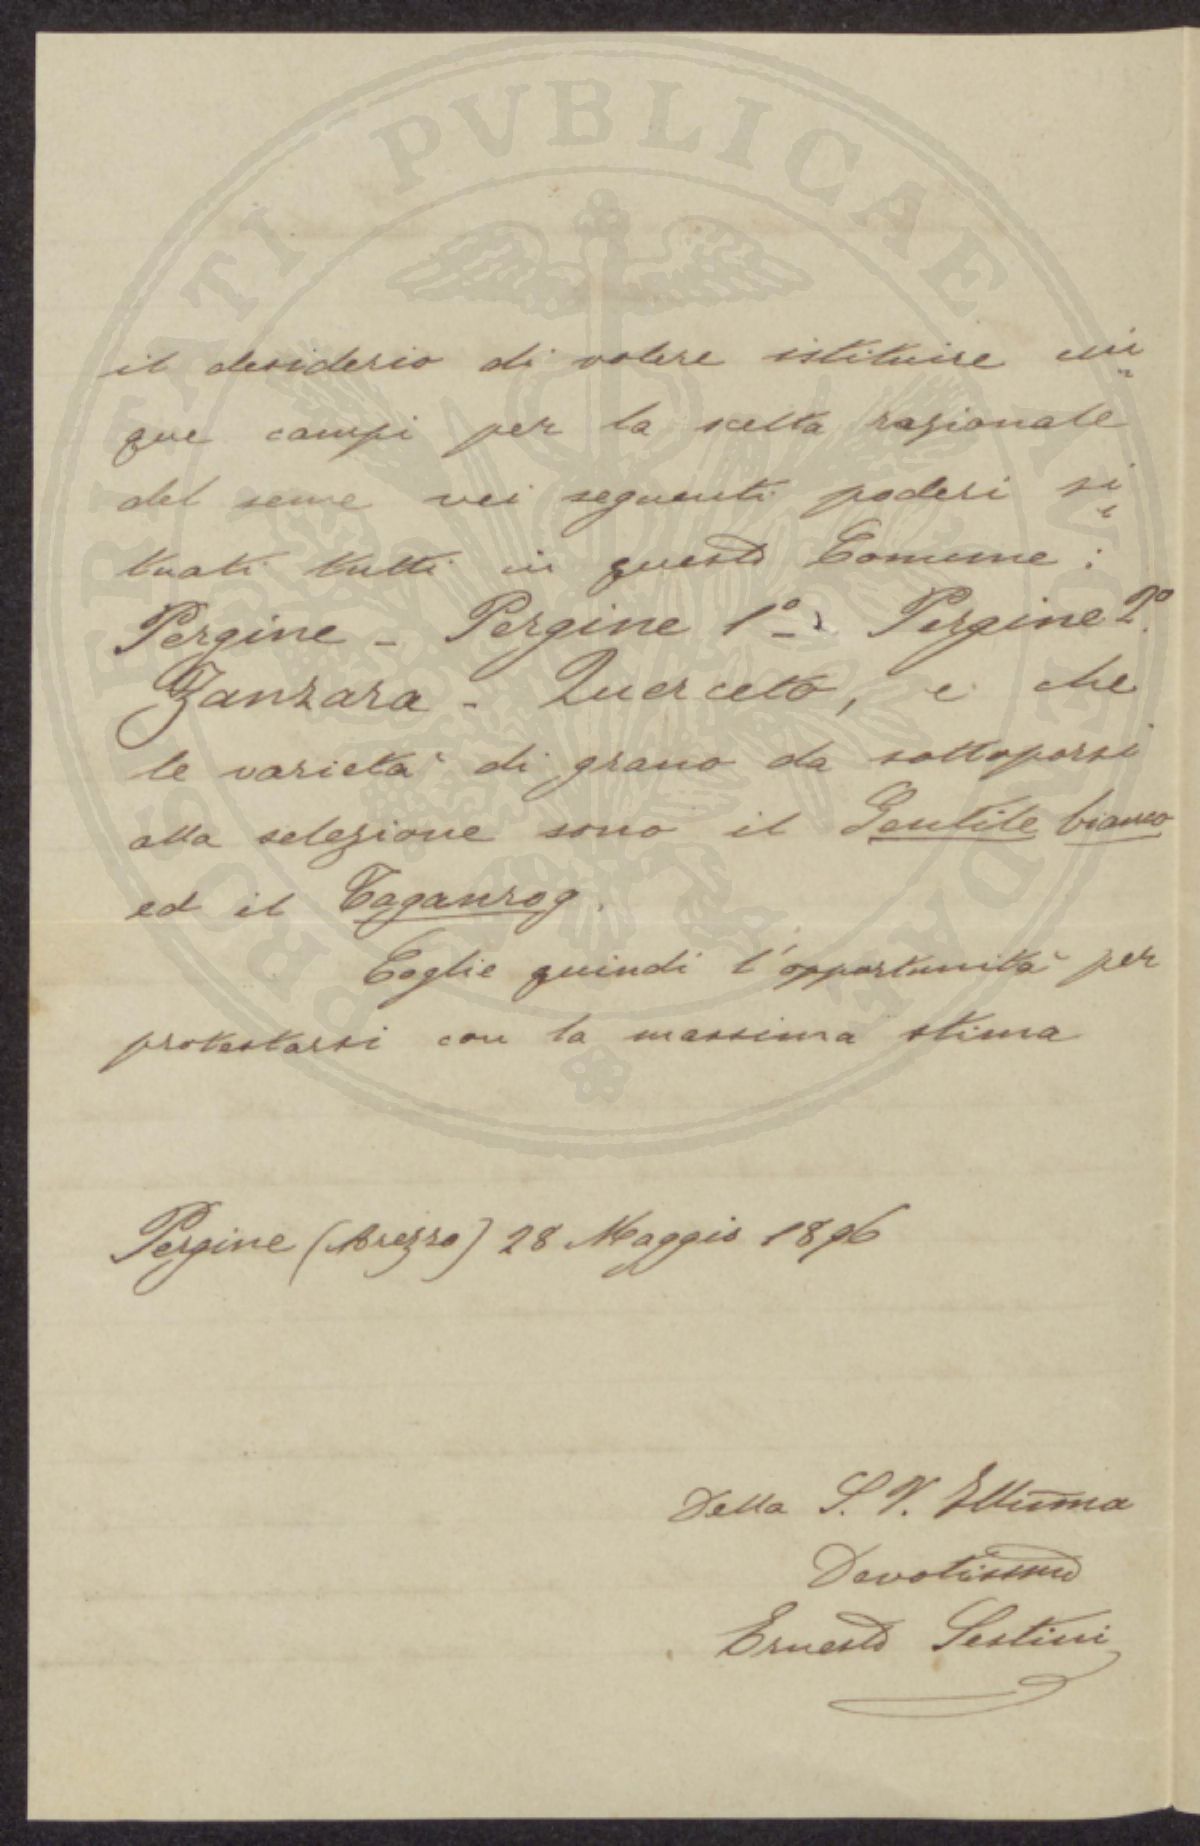 PROSPERITATI PVBLICAE AVGENDAE
il desiderio di volere istituire cin„
que campi per la scelta razionale
del seme nei seguenti poderi si„
tuati tutti in questo Comune:
Pergine - Pergine 1º - Pergine 2º.
Zanzara - Querceto, e che
le varietà di grano da sottoporsi
alla selezione sono il Gentile bianco
ed il Taganrog.
Coglie quindi l'opportunità per
protestarsi con la massima stima
Pergine (Arezzo) 28 Maggio 1896
Della S. V. Illuma
Devotissmo
Ernesto Sestini